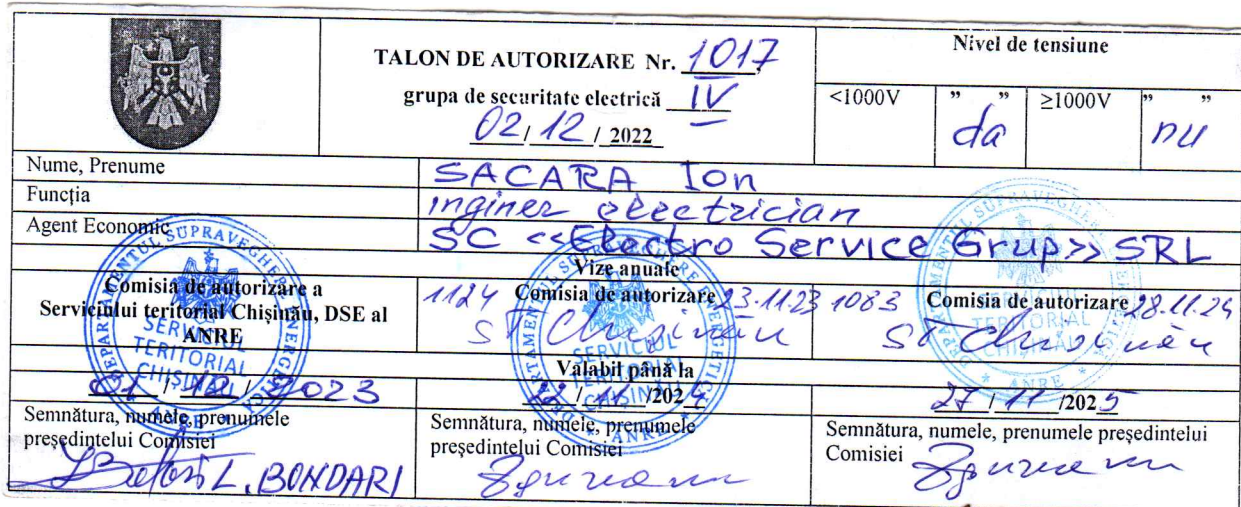 TALON DE AUTORIZARE Nr. 1017
grupa de securitate electrică IV
02 / 12 / 2022
Nivel de tensiune
<1000V " da "
≥1000V " nu "
Nume, Prenume SACARA Ion
Funcția inginer electrician
Agent Economic SC <<Electro Service Grup>> SRL
Vize anuale
Comisia de autorizare a
Serviciului teritorial Chișinău, DSE al
ANRE
1124 Comisia de autorizare 23.11.23
ST Chișinău
1083 Comisia de autorizare 28.11.24
ST Chișinău
Valabil până la
01 / 12 / 2023
22 / 11 /2024
27 / 11 /2025
Semnătura, numele, prenumele
președintelui Comisiei
L. BONDARI
Semnătura, numele, prenumele
președintelui Comisiei
Semnătura, numele, prenumele președintelui
Comisiei
DEPARTAMENTUL SUPRAVEGHERE ENERGETICĂ
* ANRE *
SERVICIUL
TERITORIAL
CHIȘINĂU
DEPARTAMENTUL SUPRAVEGHERE ENERGETICĂ
* ANRE *
SERVICIUL
TERITORIAL
CHIȘINĂU
DEPARTAMENTUL SUPRAVEGHERE ENERGETICĂ
* ANRE *
TERITORIAL
CHIȘINĂU